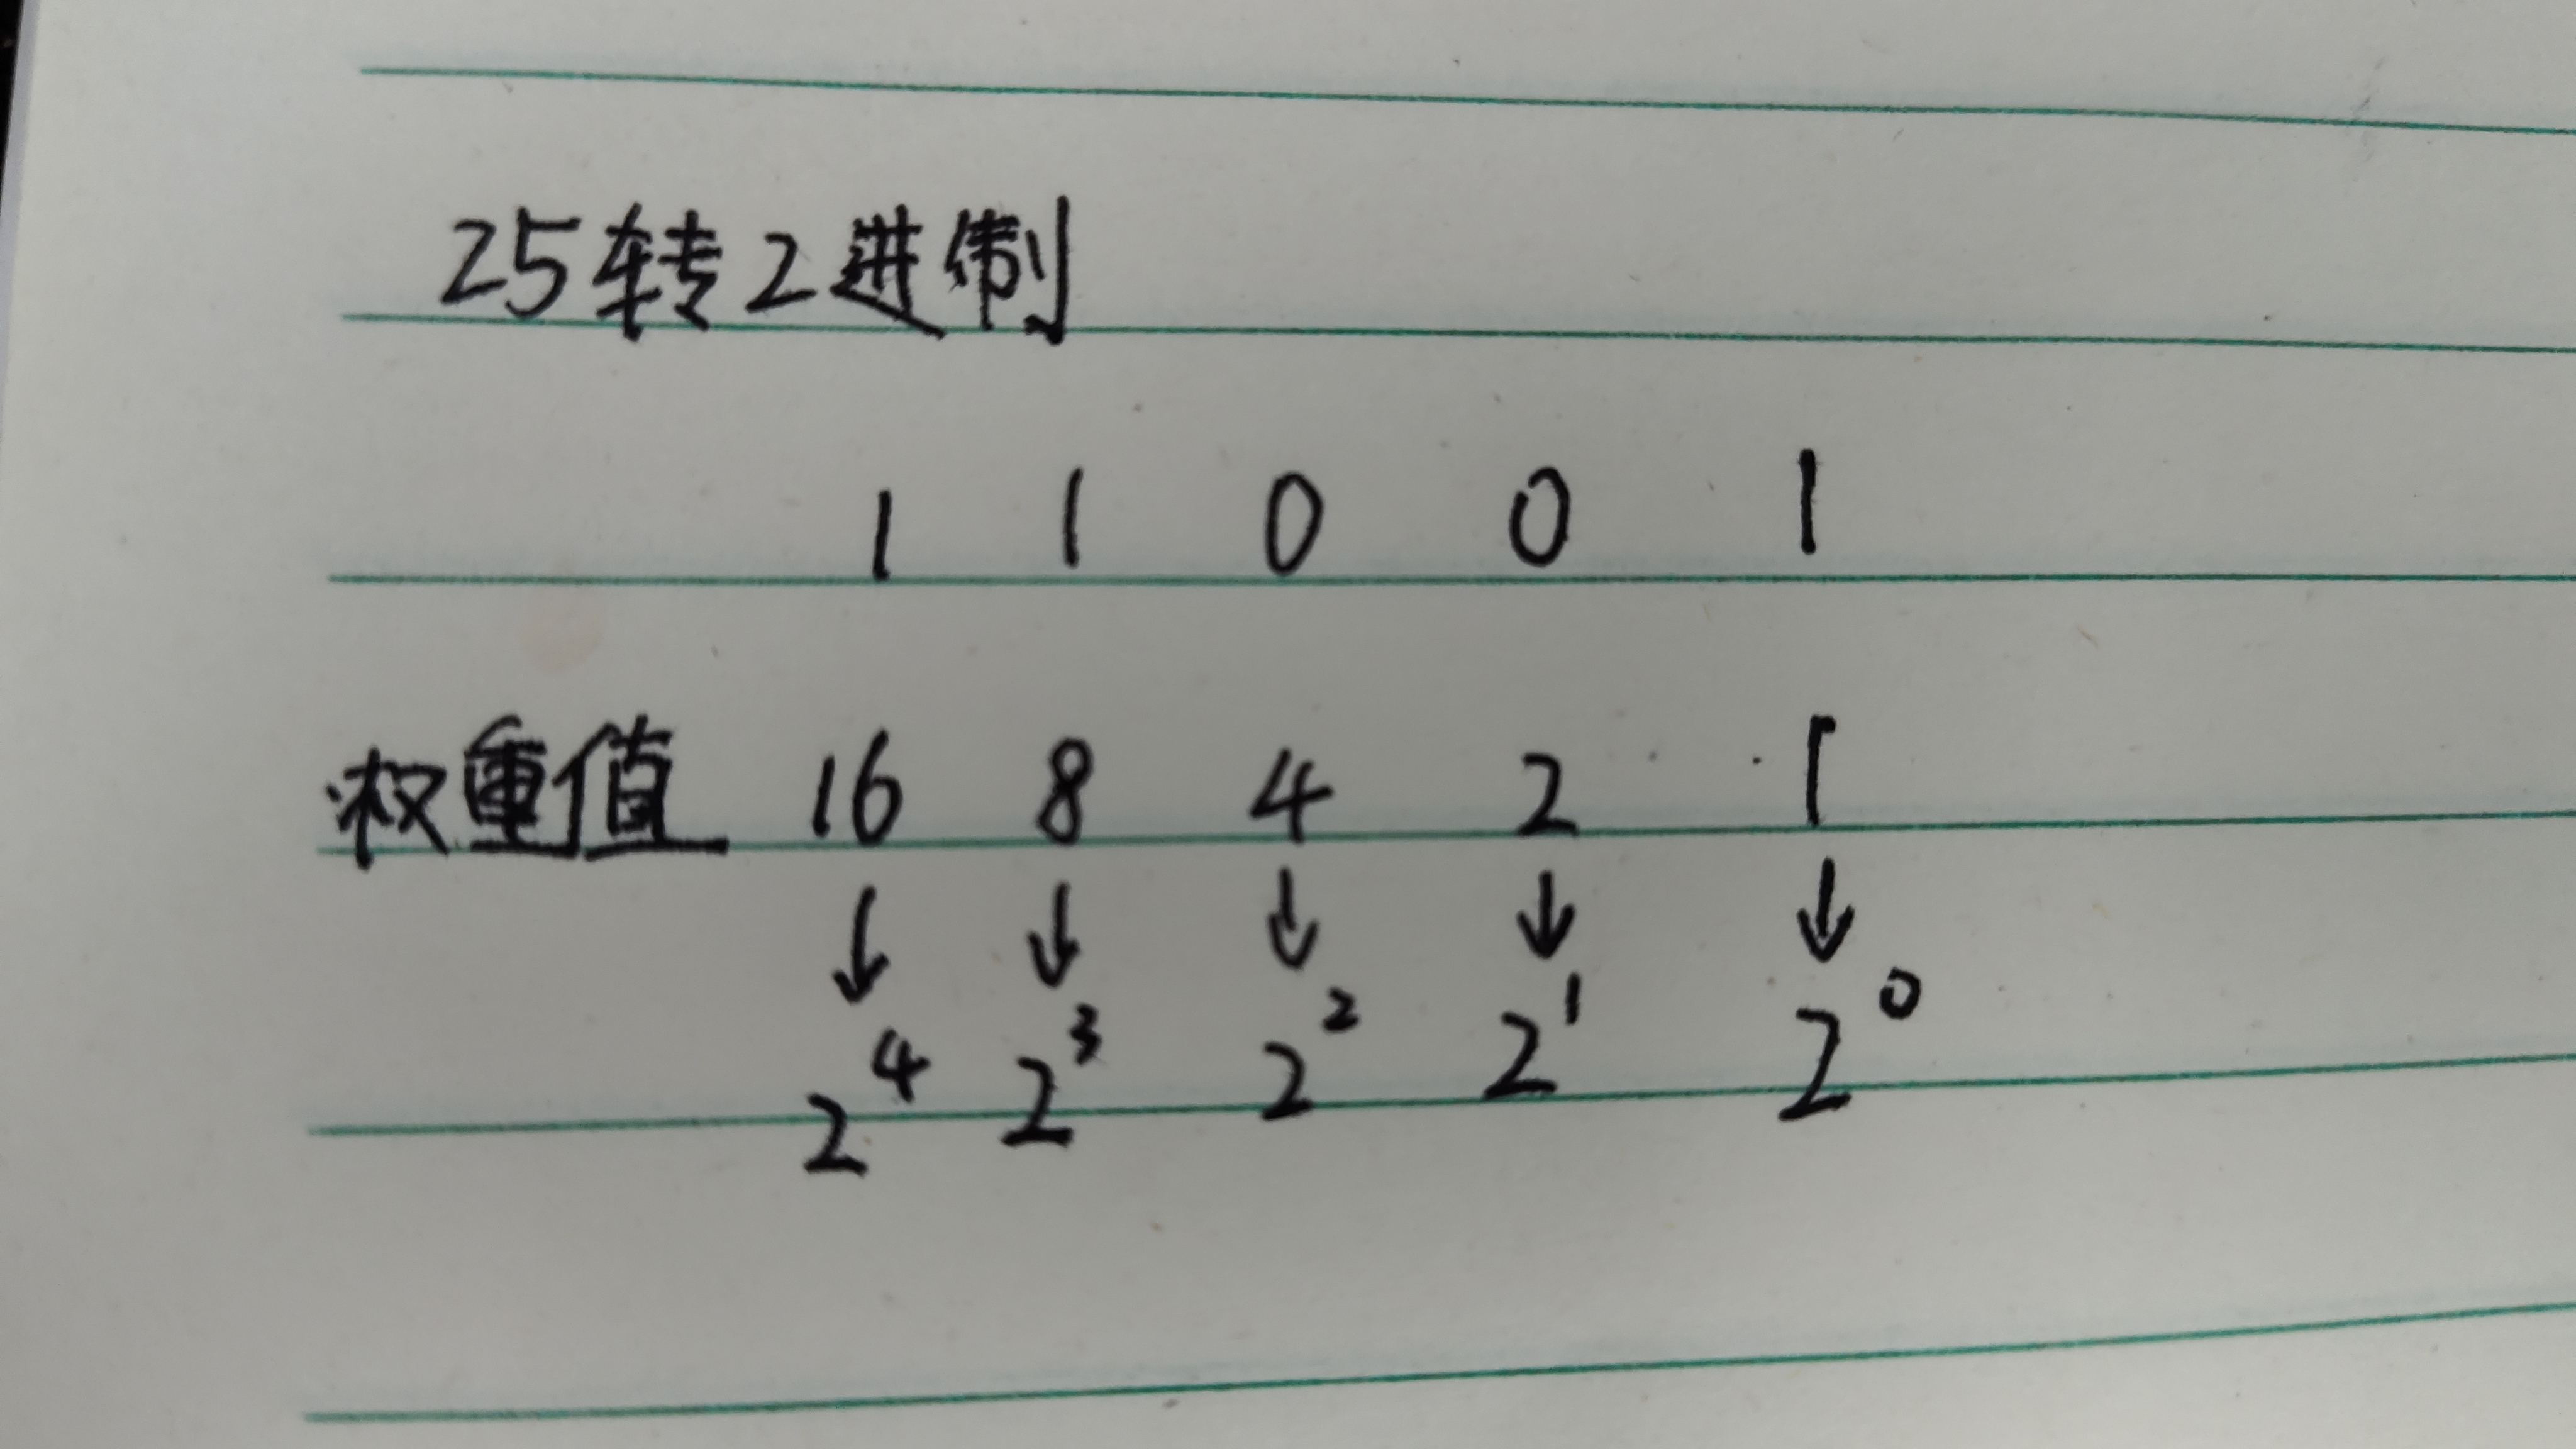 25转2进制
1 1 0 0 1
权重值 16 8 4 2 1
↓ ↓ ↓ ↓ ↓
2⁴ 2³ 2² 2¹ 2⁰